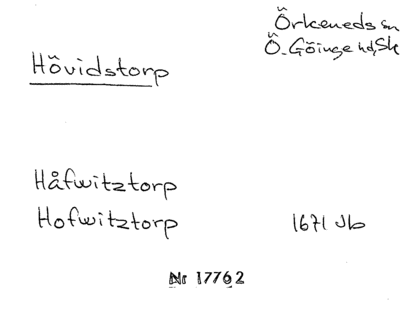 Örkeneds sn
Ö. Göinge hd, Sk
Hövidstorp
Håfwitztorp
Hofwitztorp 1671 Jb
Nr 17762